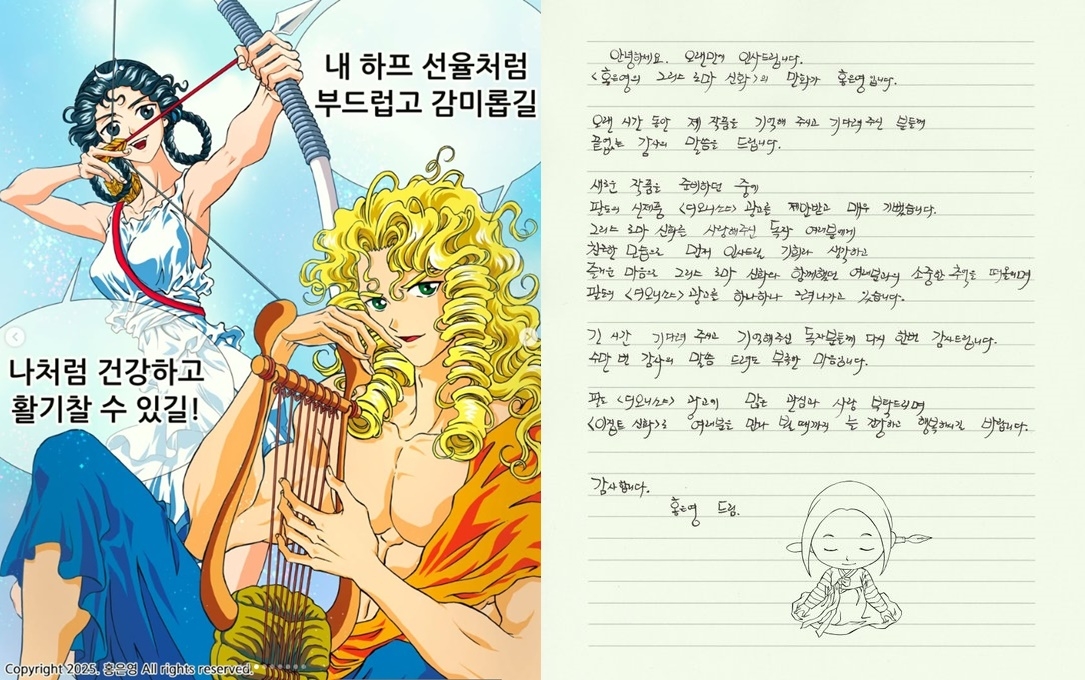 내 하프 선율처럼
부드럽고 감미롭길
나처럼 건강하고
활기찰 수 있길!
Copyright 2025. 홍은영 All rights reserved.
안녕하세요. 오랜만에 인사드립니다.
<홍은영의 그리스 로마 신화>의 만화가 홍은영입니다.
오랜 시간 동안 제 작품을 기억해 주시고 기다려주신 분들께
끝없는 감사의 말씀을 드립니다.
새로운 작품을 준비하던 중에
판도의 신제품 <디오니소스> 광고를 제안받고 매우 기뻤습니다.
그리스 로마 신화를 사랑해주신 독자 여러분에게
친근한 모습으로 먼저 인사드릴 기회라 생각하고
즐거운 마음으로 그리스 로마 신화와 함께했던 여러분과의 소중한 추억을 떠올리며
판도의 <디오니소스> 광고를 하나하나 그려나가고 있습니다.
긴 시간 기다려 주시고 기억해주신 독자분들께 다시 한번 감사드립니다.
수만 번 감사의 말씀 드려도 부족한 마음입니다.
판도 <디오니소스> 광고에 많은 관심과 사랑 부탁드리며
<이집트 신화>로 여러분을 만나 뵐 때까지 늘 건강하고 행복하시길 바랍니다.
감사합니다.
홍은영 드림.